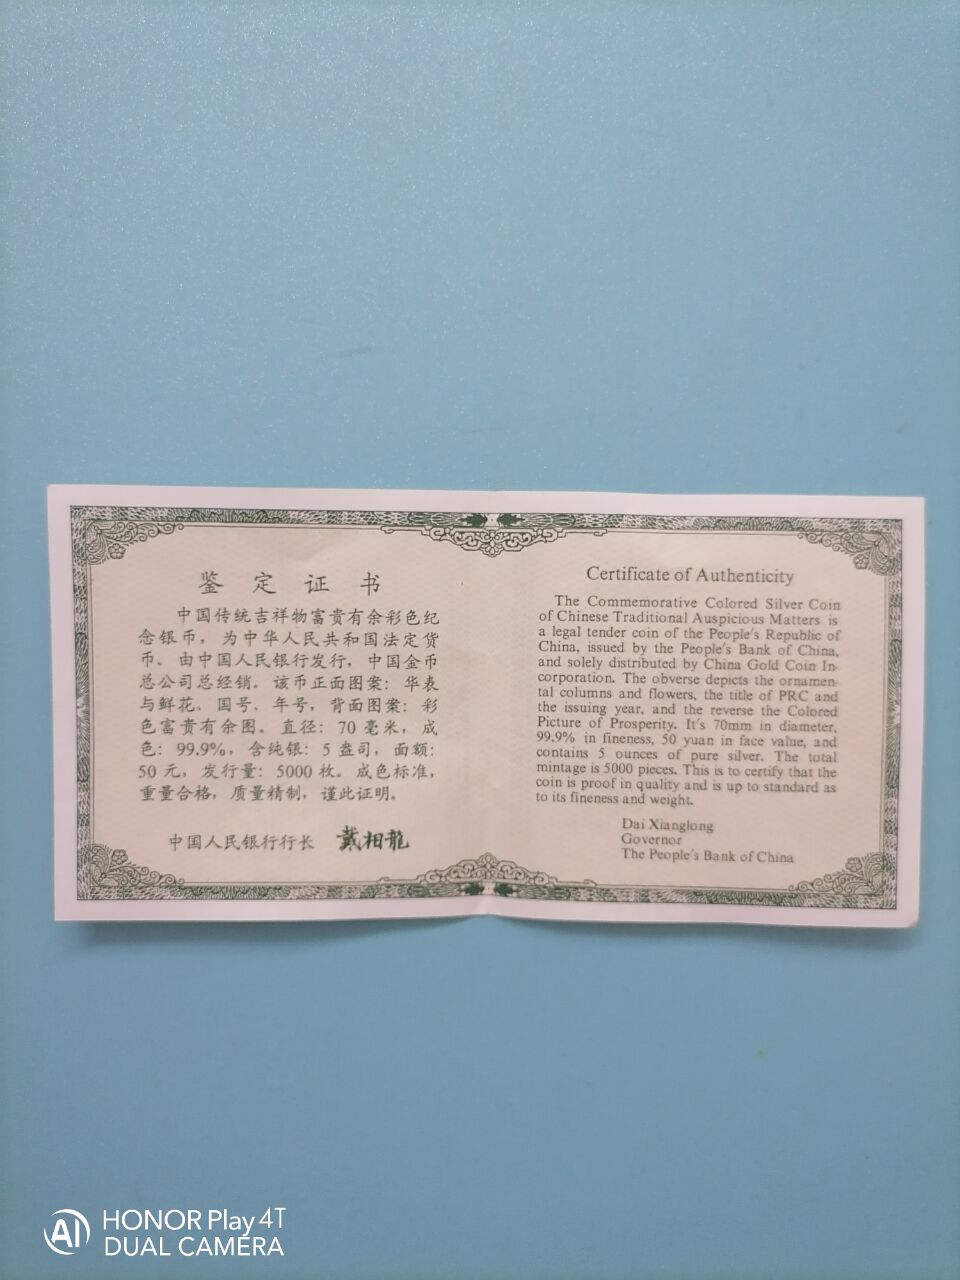 鉴定证书
中国传统吉祥物富贵有余彩色纪
念银币，为中华人民共和国法定货
币。由中国人民银行发行，中国金币
总公司总经销。该币正面图案：华表
与鲜花、国号、年号，背面图案：彩
色富贵有余图。直径：70毫米，成
色：99.9%，含纯银：5盎司，面额：
50元，发行量：5000枚。成色标准，
重量合格，质量精制，谨此证明。
中国人民银行行长 戴相龍
Certificate of Authenticity
The Commemorative Colored Silver Coin
of Chinese Traditional Auspicious Matters is
a legal tender coin of the People's Republic of
China, issued by the People's Bank of China,
and solely distributed by China Gold Coin In-
corporation. The obverse depicts the ornamen-
tal columns and flowers, the title of PRC and
the issuing year, and the reverse the Colored
Picture of Prosperity. It's 70mm in diameter,
99.9% in fineness, 50 yuan in face value, and
contains 5 ounces of pure silver. The total
mintage is 5000 pieces. This is to certify that the
coin is proof in quality and is up to standard as
to its fineness and weight.
Dai Xianglong
Governor
The People's Bank of China
AI HONOR Play 4T
DUAL CAMERA